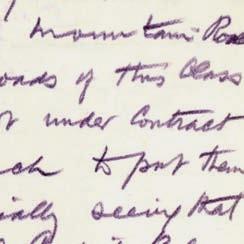 Mountain Road
oads of this Class
t under Contract
ch to put them
ially seeing that